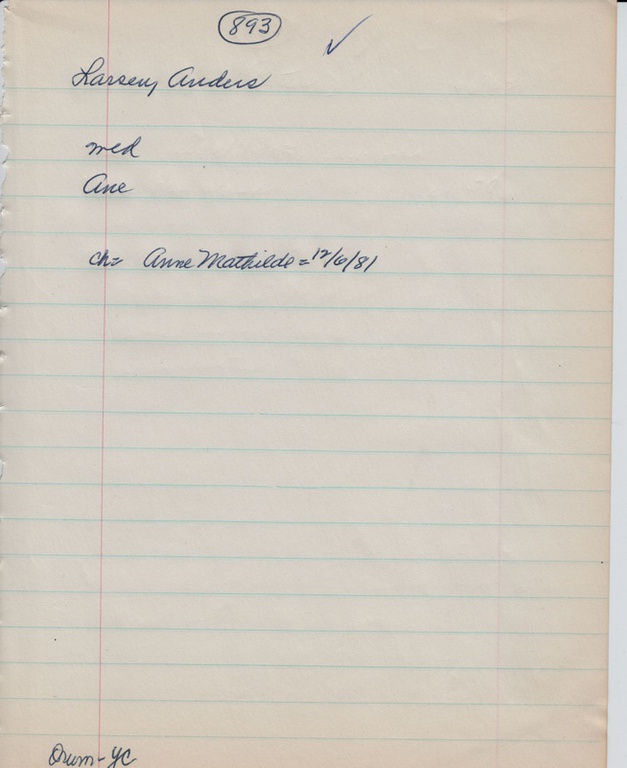 893
Larsen, Anders
med
Ane
ch= Anne Mathilde = 12/6/81
Orum - YC